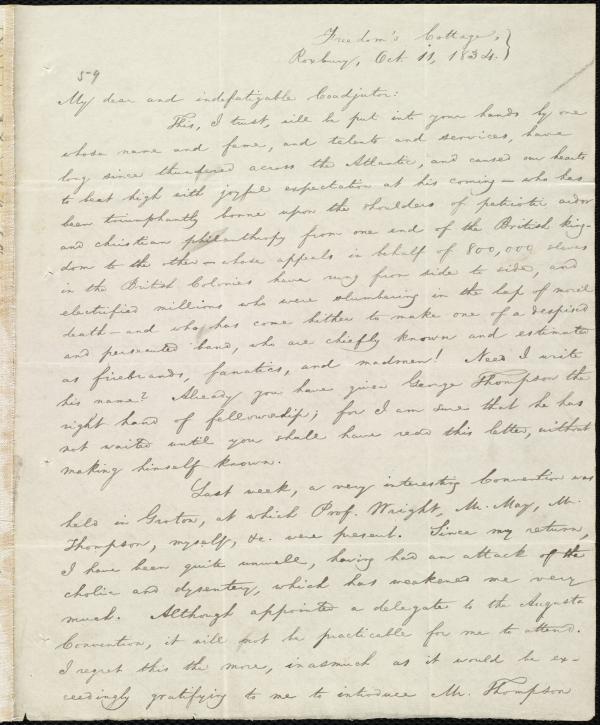 Freedom's Cottage,
Roxbury, Oct. 11, 1834.
59
My dear and indefatigable Coadjutor:
This, I trust, will be put into your hands by one
whose name and fame, and talents and services, have
long since thundered across the Atlantic, and caused our hearts
to beat high with joyful expectation at his coming—who has
been triumphantly borne upon the shoulders of patriotic ardor
and christian philanthropy from one end of the British king-
dom to the other—whose appeals in behalf of 800,000 slaves
in the British Colonies have rung from side to side, and
electrified millions who were slumbering in the lap of moral
death—and who has come hither to make one of a despised
and persecuted band, who are chiefly known and estimated
as firebrands, fanatics, and madmen! Need I write
his name? Already you have given George Thompson the
right hand of fellowship; for I am sure that he has
not waited until you shall have read this letter, without
making himself known.
Last week, a very interesting Convention was
held in Groton, at which Prof. Wright, Mr. May, Mr.
Thompson, myself, &c. were present. Since my return,
I have been quite unwell, having had an attack of the
cholic and dysentery, which has weakened me very
much. Although appointed a delegate to the Augusta
Convention, it will not be practicable for me to attend.
I regret this the more, inasmuch as it would be ex-
ceedingly gratifying to me to introduce Mr. Thompson